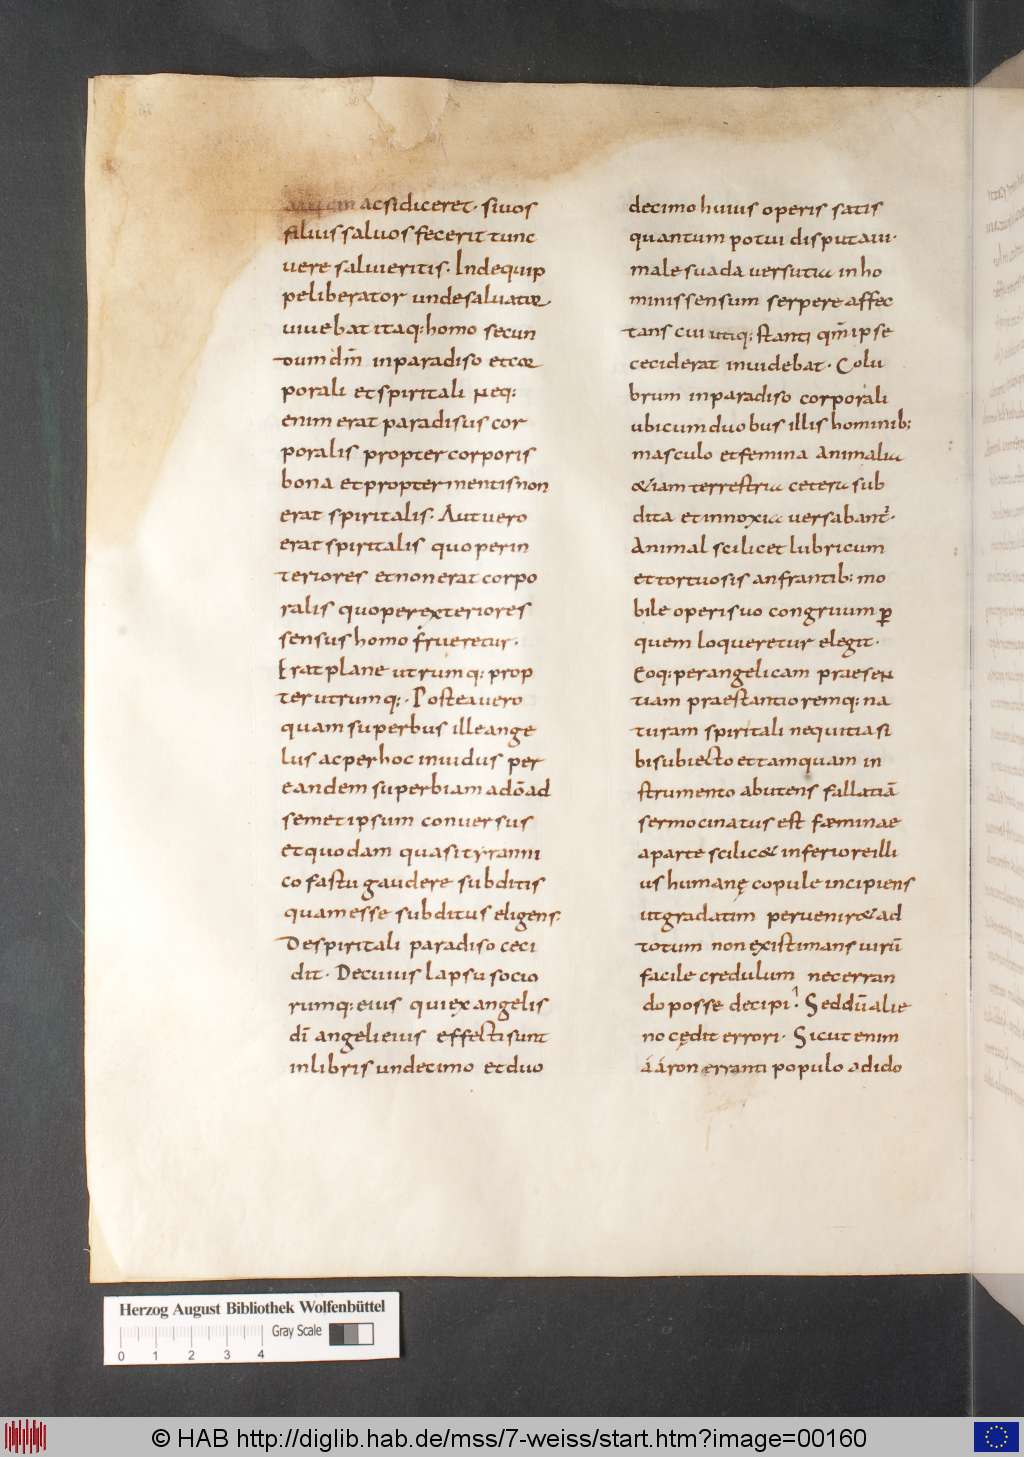 ac si diceret · si uos
filius saluos fecerit tunc
uere salui eritis · Inde quip
pe liberator unde saluator
uiuebat itaq: homo secun
dum dm̄ in paradiso et cor
porali et spiritali Neq:
enim erat paradisus cor
poralis propter corporis
bona et propter mentis non
erat spiritalis · Aut uero
erat spiritalis quo per in
teriores et non erat corpo
ralis quo per exteriores
sensus homo frueretur ·
Erat plane utrumq: prop
ter utrumq: · Postea uero
quam superbus ille ange
lus ac per hoc inuidus per
eandem superbiam a dō ad
semet ipsum conuersus
et quodam quasi tyranni
co fastu gaudere subditis
quam esse subditus eligens:
De spiritali paradiso ceci
dit · De cuius lapsu socio
rumq: eius qui ex angelis
dī angeli eius effecti sunt
in libris undecimo et duo
decimo huius operis satis
quantum potui disputaui ·
male suada uersutia in ho
minis sensum serpere affec
tans cui utiq: stanti qm̄ ipse
ceciderat inuidebat · Colu
brum in paradiso corporali
ubi cum duobus illis hominib:
masculo et femina animalia
&iam terrestria cetera sub
dita et innoxia uersabant᷑ ·
Animal scilicet lubricum
et tortuosis anfrantib: mo
bile operi suo congruum ꝑ
quem loqueretur elegit ·
Eoq: per angelicam praesen
tiam praestantioremq: na
turam spiritali nequitia si
bi subiecto et tamquam in
strumento abutens fallatiā
sermocinatus est fæminae
a parte scilic& inferiore illi
us humanę copule incipiens
ut gradatim peruenir& ad
totum non existimans uirū
facile credulum nec erran
do posse decipi · Sed dum alie
no cędit errori · Sicut enim
ááron erranti populo ad ido
Herzog August Bibliothek Wolfenbüttel
Gray Scale
0 1 2 3 4
© HAB http://diglib.hab.de/mss/7-weiss/start.htm?image=00160